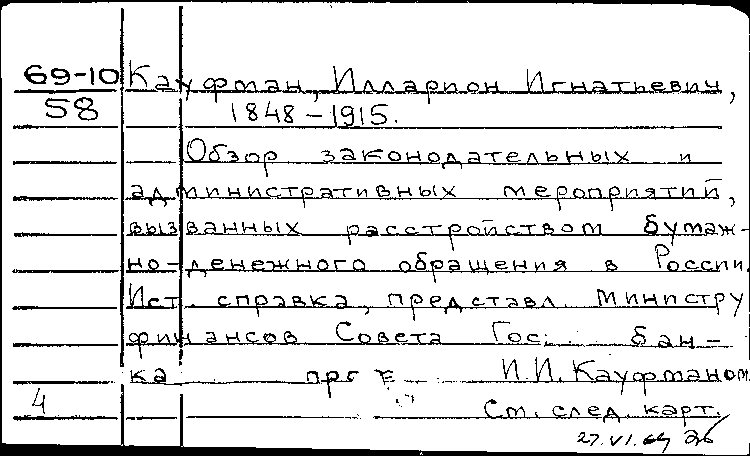 69-10 Кауфман, Илларион Игнатьевич,
58 1848-1915.
Обзор законодательных и
административных мероприятий,
вызванных расстройством бумаж-
но-денежного обращения в России.
Ист. справка, представл. министру
финансов Совета Гос. бан-
ка И.И. Кауфманом
4 См. след. карт.
27.VI.69